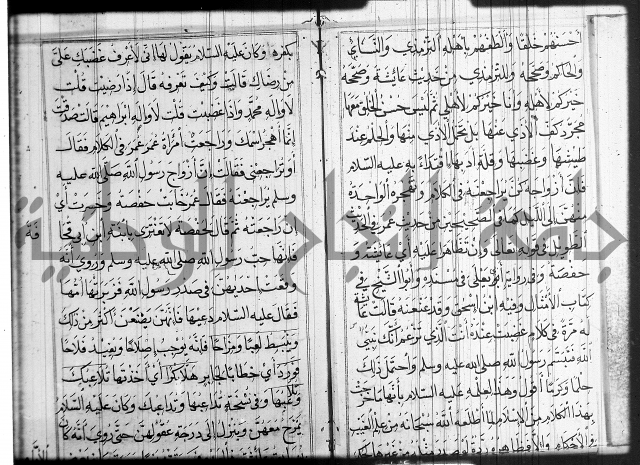 أحسنهم خلقا وألطفهم بأهله الترمذي والنسائي
والحاكم وصححه وللترمذي من حديث عائشة وصححه
خيركم لأهله وأنا خيركم لأهلي ثم ليس حسن الخلق معها
مجرد كف الأذى عنها بل تحمل الأذى منها والحلم عند
طيشها وغضبها وقلة أدبها اقتداء به عليه السلام
فلن أزواجه كن يراجعنه في الكلام وتهجره الواحدة
منهن إلى الليل كما في الصحيحين من حديث عمر والحديث
الطويل في قوله تعالى وإن تظاهرا عليه أي عائشة و
حفصة وفي رواية أبي يعلى في مسنده وأبو الشيخ في
كتاب الأمثال وفيه ابن إسحق وقد عنعنه قالت عائشة
له مرة في كلام غضبت عنده أنت الذي تزعم أنك نبي
الله فتبسم رسول الله صلى الله عليه وسلم واحتمل ذلك
حلما وكرما أقول وهذا لعلمه عليه السلام بأنها ما خرجت
بهذا الكلام من الإسلام لما أطلعه الله سبحانه من عين الغيب
بكفره وكان عليه السلام يقول لها إني لأعرف غضبك علي
من رضاك قالت وكيف تعرفه قال إذا رضيت قلت
لا وإله محمد وإذا غضبت قلت لا وإله إبراهيم قالت صدقت
إنما أهجر اسمك وراجعت امرأة عمر عمر في الكلام فقال
أو تراجعيني فقالت إن أزواج رسول الله صلى الله عليه
وسلم يراجعنه فقال عمر خابت حفصة وخسرت أي
إن راجعته ثم قال لحفصة لا تغتري بابنة ابن أبي قحافة
فإنها حب رسول الله صلى الله عليه وسلم وروي أنه
وقعت إحديهن في صدر رسول الله فزبرتها أمها
فقال عليه السلام دعيها فإنهن يصنعن أكثر من ذلك
وينبسط لعبا ومزاحا فإنه يوجب إصلاحا ويفيد فلاحا
فورد أي خطابا لجابر هلا بكرا أي أخذتها تلاعبك
وتلاعبها وفي نسخة تداعبها وتداعبك وكان عليه السلام
يمزح معهن وينزل إلى درجة عقولهن حتى روي أنه كان
جامعة النجاح الوطنية